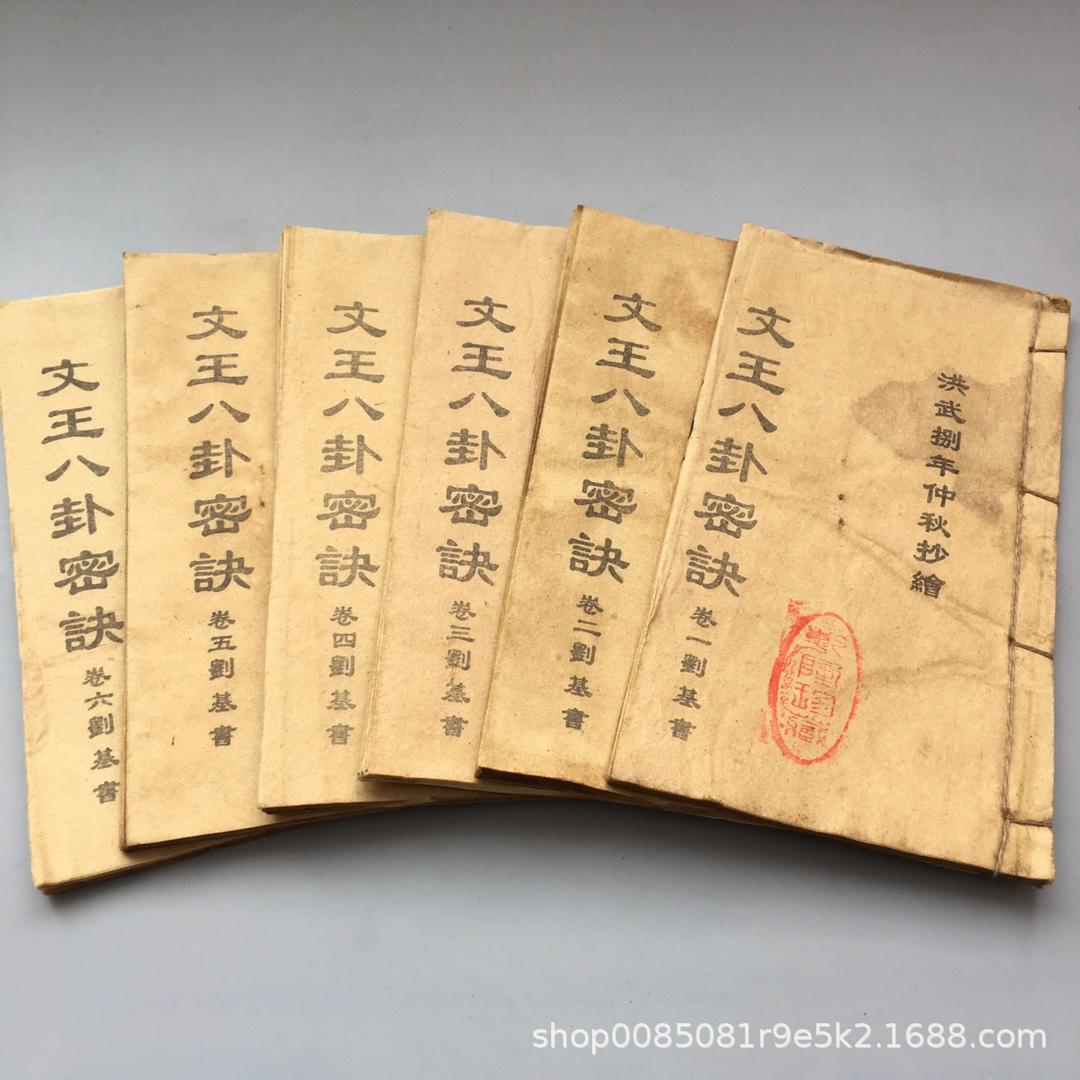 洪武捌年仲秋抄繪
文王八卦密訣 卷一劉基書
文王八卦密訣 卷二劉基書
文王八卦密訣 卷三劉基書
文王八卦密訣 卷四劉基書
文王八卦密訣 卷五劉基書
文王八卦密訣 卷六劉基書
shop0085081r9e5k2.1688.com